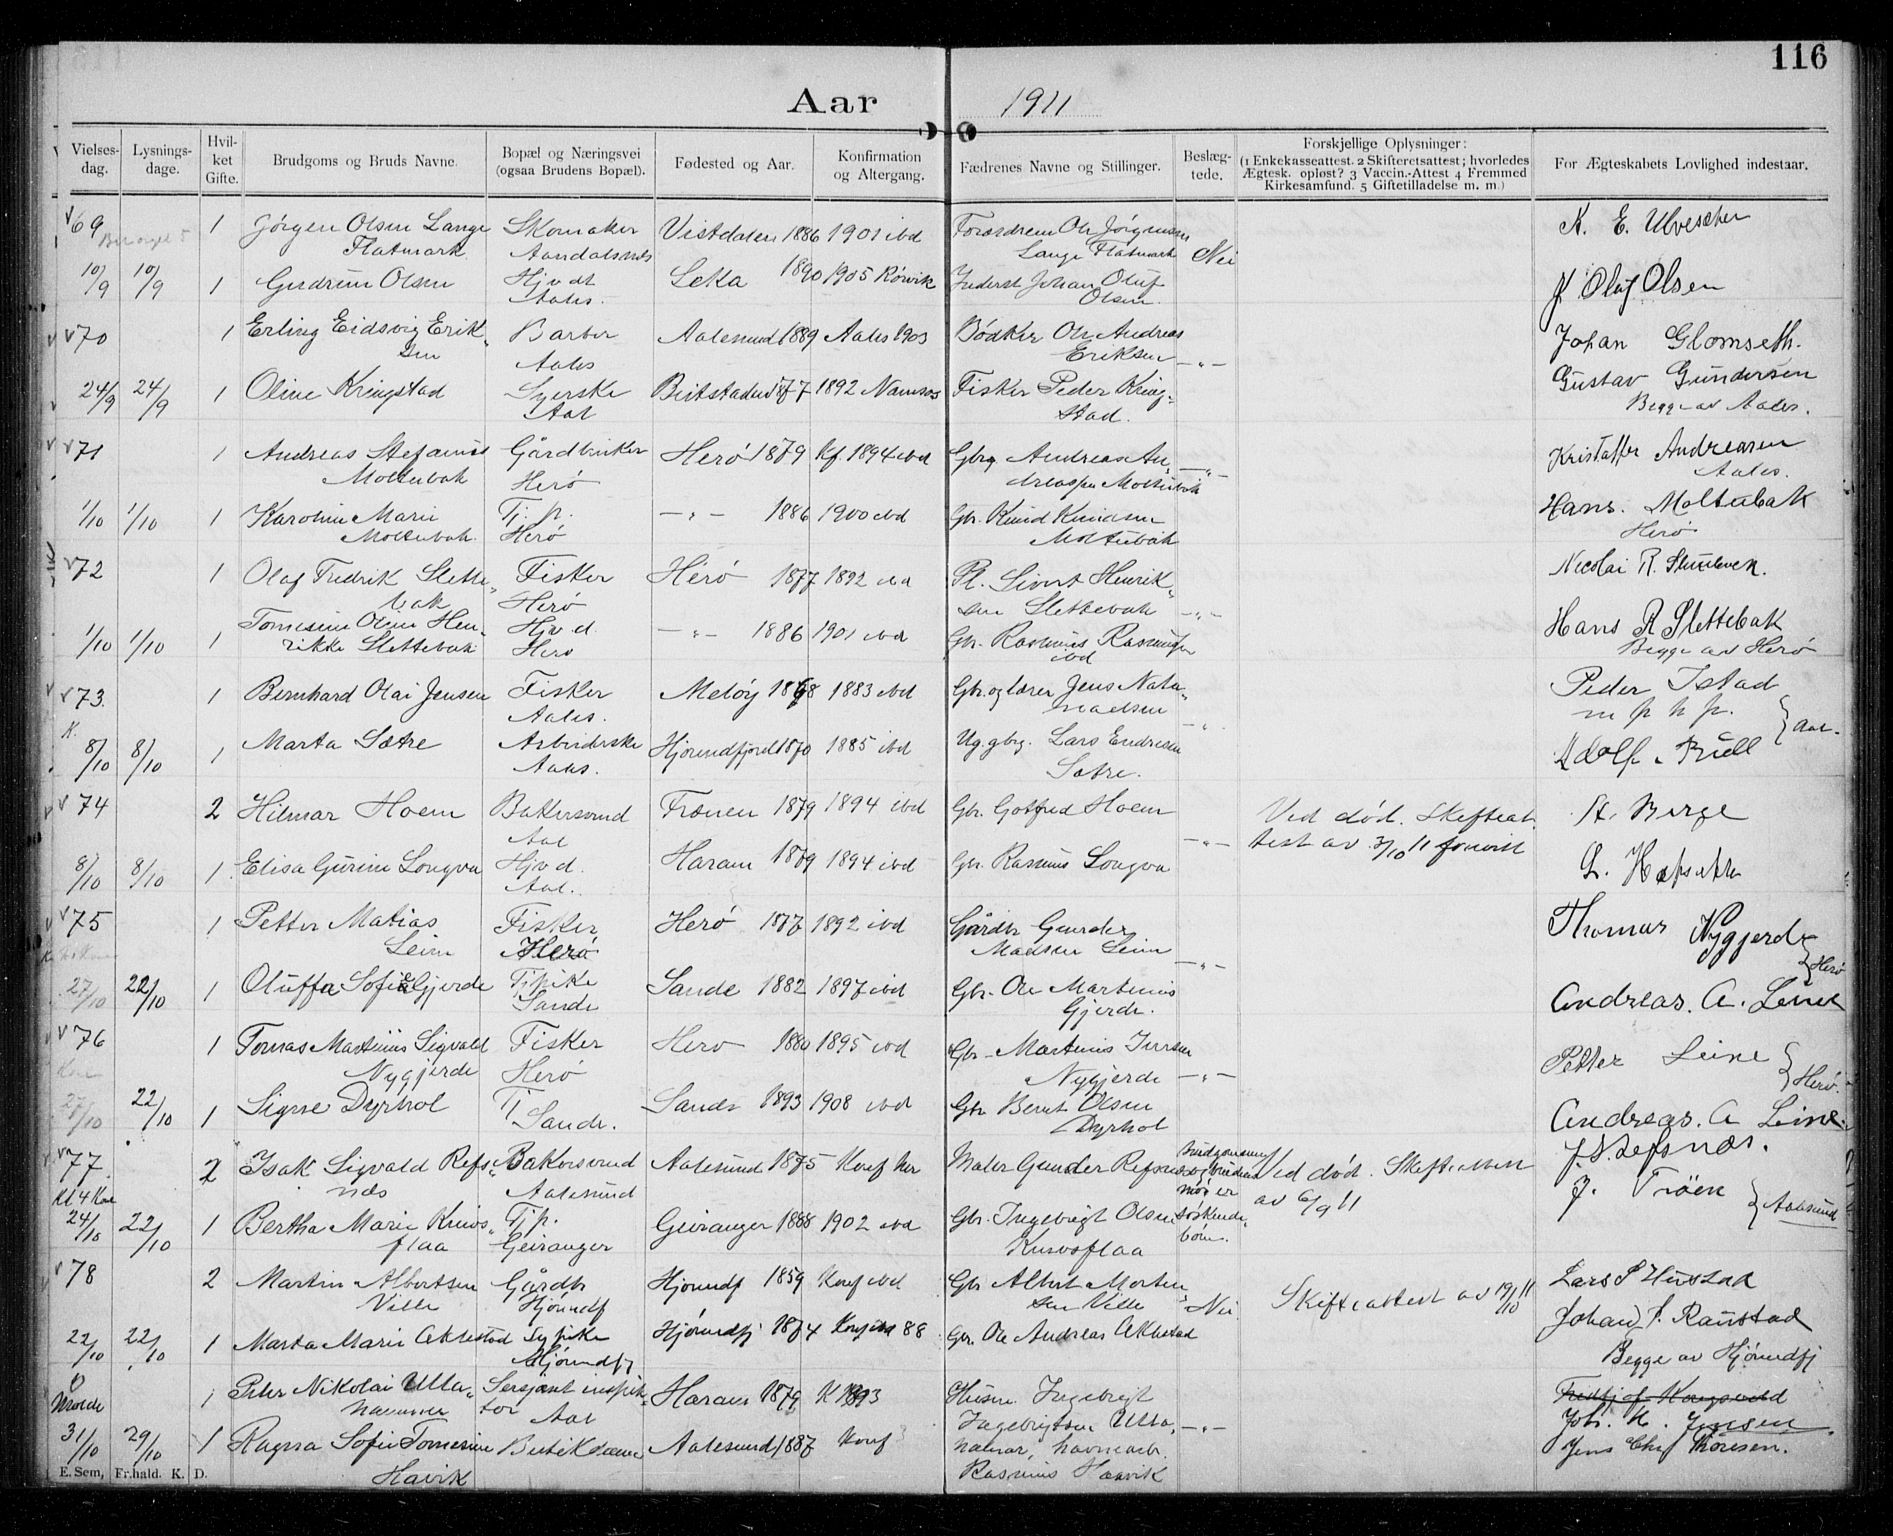 116
Aar 1911
Vielses-dag. Lysnings-dage. Hvil-ket Gifte. Brudgoms og Bruds Navne. Bopæl og Næringsvei (ogsaa Brudens Bopæl). Fødested og Aar. Konfirmation og Altergang. Fædrenes Navne og Stillinger. Beslæg-tede. Forskjellige Oplysninger: (1 Enkekasseattest. 2 Skifteretsattest; hvorledes Ægtesk. opløst? 3 Vaccin.-Attest 4 Fremmed Kirkesamfund. 5 Giftetilladelse m. m.) For Ægteskabets Lovlighed indestaar.
69 1 Jørgen Olsen Lange Skomaker Vistdalen 1886 1901 ibd Ole Jørgensen
Flatmark Aandalsnes Lange Flatmark Nei
10/9 10/9 1 Gudrun Olsen Hjv dt Leka 1890 1905 Rørvik Inderst Johan Oluf J Oluf Olsen
Aales. Olsen.
70 1 Erling Eidsvig Erik- Barber Aalesund 1889 Aales 1903 Bødker Ole Andreas Johan Glomseth.
sen Aales Eriksen -"-
24/9 24/9 1 Oline Kringstad Syerske Beitstaden 1877 1892 Namsos Fisker Peder Kring- Gustav Gundersen
Aal stad. Begge av Aales.
71 1 Andreas Stefanus Gårdbruker Herø 1879 Kf. 1894 ibd Gbrg Andreas An- Kristoffer Andreassen
Moltubak Herø dreassen Moltubak -"- Aales.
1/10 1/10 1 Karoline Marie Tj. p. -"- 1886 1900 ibd Gbr. Knud Knudsen Hans. Moltubak
Moltubak. Herø Moltubak Herø
72 1 Olaf Fredrik Slette- Fisker Herø 1877 1892 ibd Pl. Sivert Henrik- Nicolai R.
bak Herø sen Slettebak -"-
1/10 1/10 1 Tomesine Oline Hen- Hjv d. -"- 1886 1901 ibd Gbr. Rasmus Rasmussen Hans R Slettebak
rikke Slettebak Herø ibd Begge av Herø
73. 1 Bernhard Olai Jensen Fisker Meløy 1868 1883 ibd Gbr. og lærer Jens Nata- Peder Istad
K. Aales. naelsen -"- m p h p.
8/10 8/10 1 Marta Sætre Arbeiderske Hjørundfjord 1870 1885 ibd Ug. gbrg. Lars Endresen Adolf Buell Aal.
Aales. Sætre.
74 2 Hilmar Hoem Bakersvend Frænen 1879 1894 ibd Gbr. Gotfred Hoem Ved død. Skifteat- A. Berge
Aal -"- test av 3/10 11 forevist
8/10 8/10 1 Elisa Gurine Longva Hjv d. Haram 1879 1894 ibd Gbr. Rasmus Longva
Aal.
75 1 Petter Matias Fisker Herø 1877 1892 ibd Gårdbr Gunder Thomas Nygjerde
Leine Herø Madsen Leine -"- Herø
27/10 22/10 1 Oluffa Sofie Gjerde Tj. pike Sande 1882 1897 ibd Gbr. Ole Martinus Andreas. A. Leine
Sande Gjerde.
76 1 Tomas Martinus Sigvald Fisker Herø 1880 1895 ibd Gbr. Martinus Iversen Petter Leine
Nygjerde Herø Nygjerde -"- Herø.
27/10 22/10 1 Signe Dyrhol Tj Sande 1893 1908 ibd Gbr Bernt Olsen Andreas. A Leine.
Sande. Dyrhol
77. 2 Isak Sigvald Refs- Bakersvend Aalesund 1875 Konf her Maler Gunder Refsnes brudgommens og brudens Ved død. Skifteattest J. Refsnæs.
Kl 4 næs Aalesund mor er av 6/9 11 J. Trøen
24/10 22/10 1 Bertha Marie Knivs- Tj p. Geiranger 1888 1902 ibd Gbr. Ingebrigt Olsen søskende- Aalesund
flaa Geiranger Knivsflaa børn.
78 2 Martin Albertsen Gårdbr Hjørundf 1859 Konf ibd Gbr Albert Morten- Lars P Hustad
Ville Hjørundf sen Ville Nei Skifteattest av 19/10 11
22/10 22/10 1 Marta Marie Aklestad Sypike Hjørundfj 1874 Konf ibd 88 Gbr. Ole Andreas Aklestad Johan P. Raustad
Hjørundfj Begge av Hjørundfj
Molde 1 Peter Nikolai Ulla- Sersjant inspek- Haram 1879 K 1893 Husm. Ingebrigt
hammer tør Aal Ingebrigtsen Ulla- -"- Joh. K. Jensen
31/10 29/10 1 Ragna Sofie Tomesine Butikdame Aalesund 1887 Konf hamar, havnearb. Jens Chr Thoresen.
Havik Rasmus Haavik
E. Sem, Fr.hald. K. D.